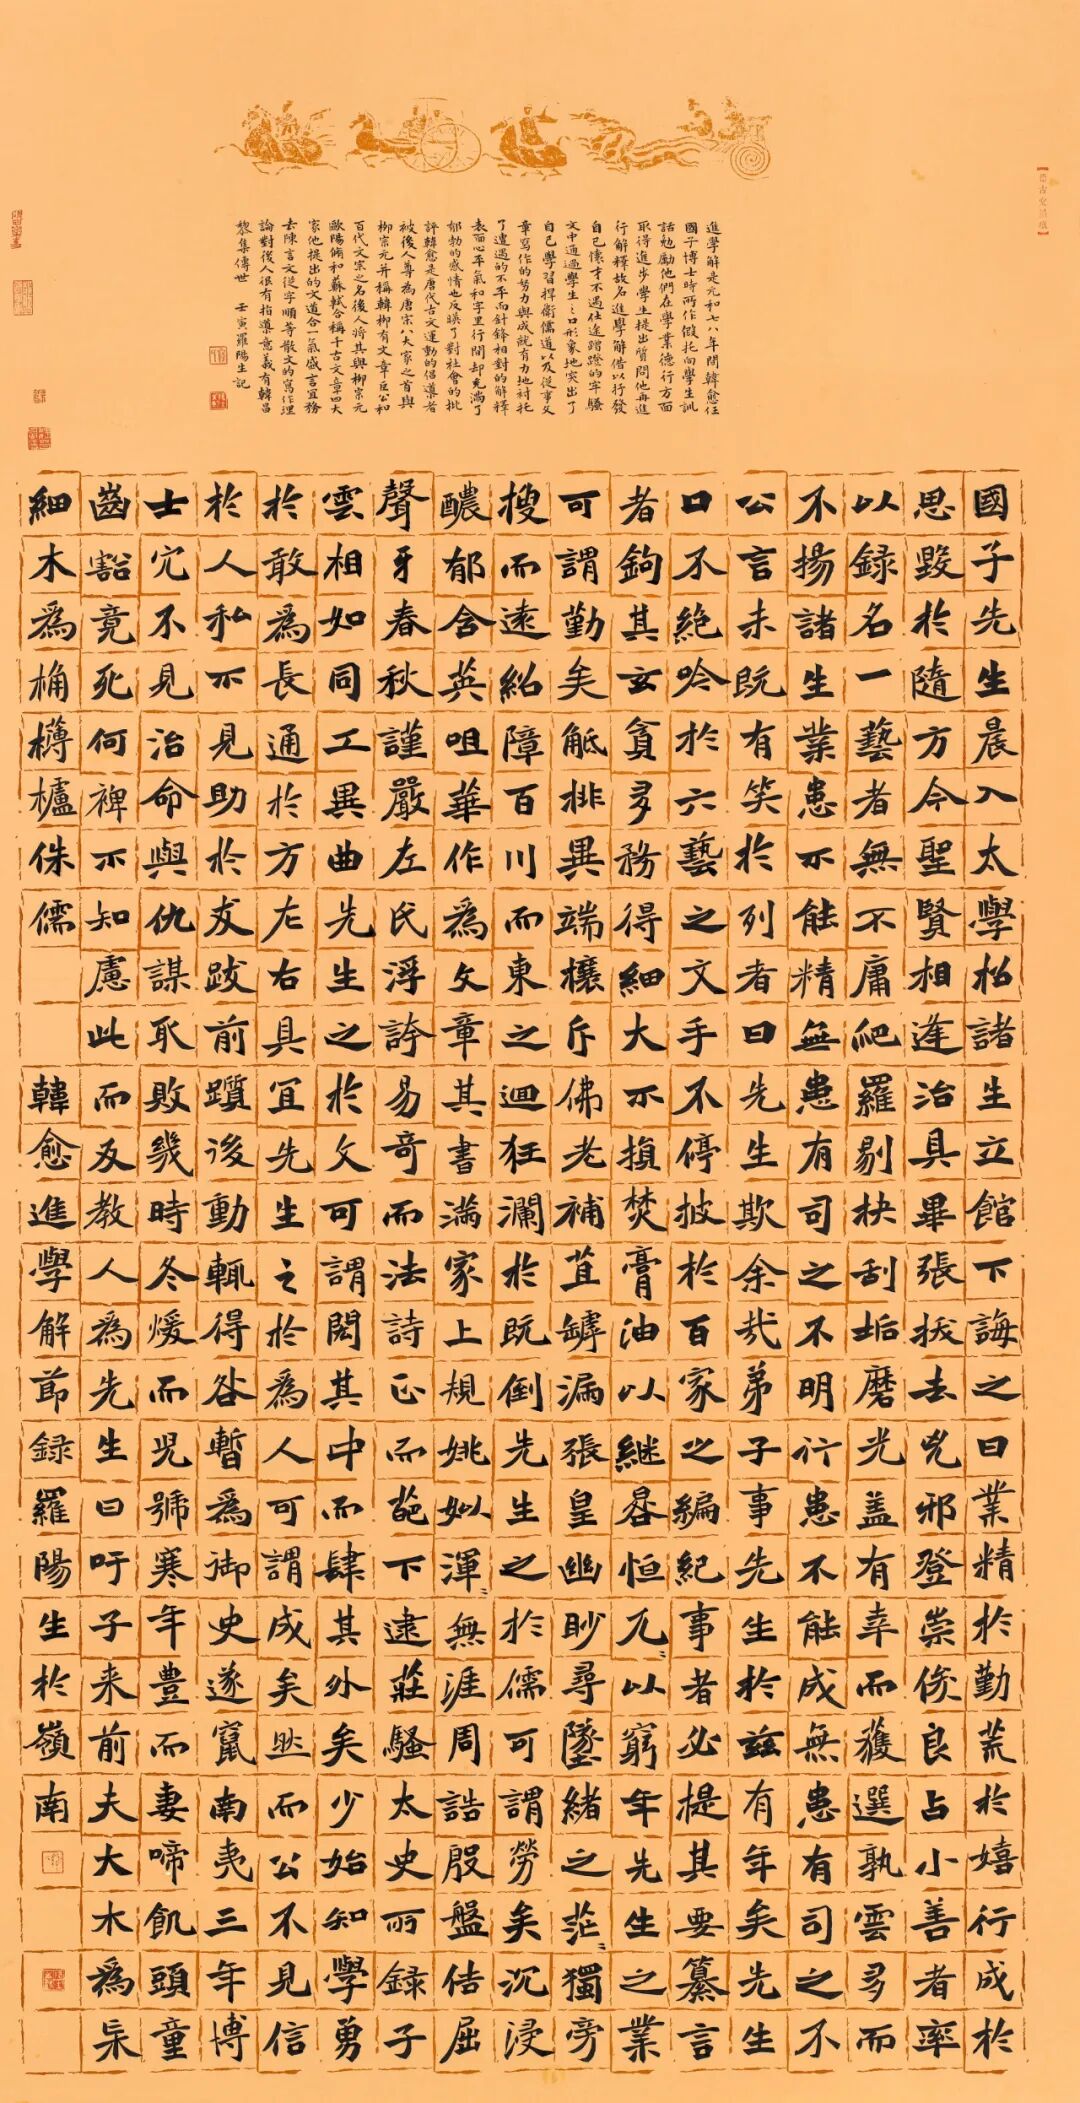 進學解是元和七八年間韓愈任
國子博士時所作假托向學生訓
話勉勵他們在學業德行方面
取得進步學生提出質問他再進
行解釋故名進學解借以行發
自己懷才不遇仕途蹭蹬的牢騷
文中通過學生之口形象地突出了
自己學習捍衛儒道以及從事文
章寫作的努力與成就有力地襯托
了遭遇的不平而針鋒相對的解釋
表面心平氣和字里行間却充滿了
郁勃的感情也反映了對社會的批
評韓愈是唐代古文運動的倡導者
被後人尊為唐宋八大家之首與
柳宗元并稱韓柳有文章巨公和
百代文宗之名後人將其與柳宗元
歐陽脩和蘇軾合稱千古文章四大
家他提出的文道合一氣盛言宜務
去陳言文從字順等散文的寫作理
論對後人很有指導意義有韓昌
黎集傳世 壬寅羅陽生記
國子先生晨入太學招諸生立館下誨之曰業精於勤荒於嬉行成於
思毀於隨方今聖賢相逢治具畢張拔去兇邪登崇俊良占小善者率
以録名一藝者無不庸爬羅剔抉刮垢磨光盖有幸而獲選孰雲多而
不揚諸生業患不能精無患有司之不明行患不能成無患有司之不
公言未既有笑於列者曰先生欺余哉弟子事先生於兹有年矣先生
口不絶吟於六藝之文手不停披於百家之編紀事者必提其要纂言
者鉤其玄貪多務得細大不捐焚膏油以継晷恒兀〻以窮年先生之業
可謂勤矣觝排異端攘斥佛老補苴罅漏張皇幽眇尋墜緒之茫〻獨旁
搜而遠紹障百川而東之迴狂瀾於既倒先生之於儒可謂勞矣沉浸
醲郁含英咀華作為文章其書滿家上規姚姒渾〻無涯周誥殷盤佶屈
聲牙春秋謹嚴左氏浮誇易奇而法詩正而葩下逮莊騷太史所録子
雲相如同工異曲先生之於文可謂閎其中而肆其外矣少始知學勇
於敢為長通於方左右具宜先生之於為人可謂成矣然而公不見信
於人私不見助於友跋前躓後動輒得咎暫為御史遂竄南夷三年博
士冗不見治命與仇謀取敗幾時冬煖而兒號寒年豐而妻啼飢頭童
齒豁竟死何裨不知慮此而反教人為先生曰吁子来前夫大木為杗
細木為桷欂櫨侏儒 韓愈進學解節録羅陽生於嶺南